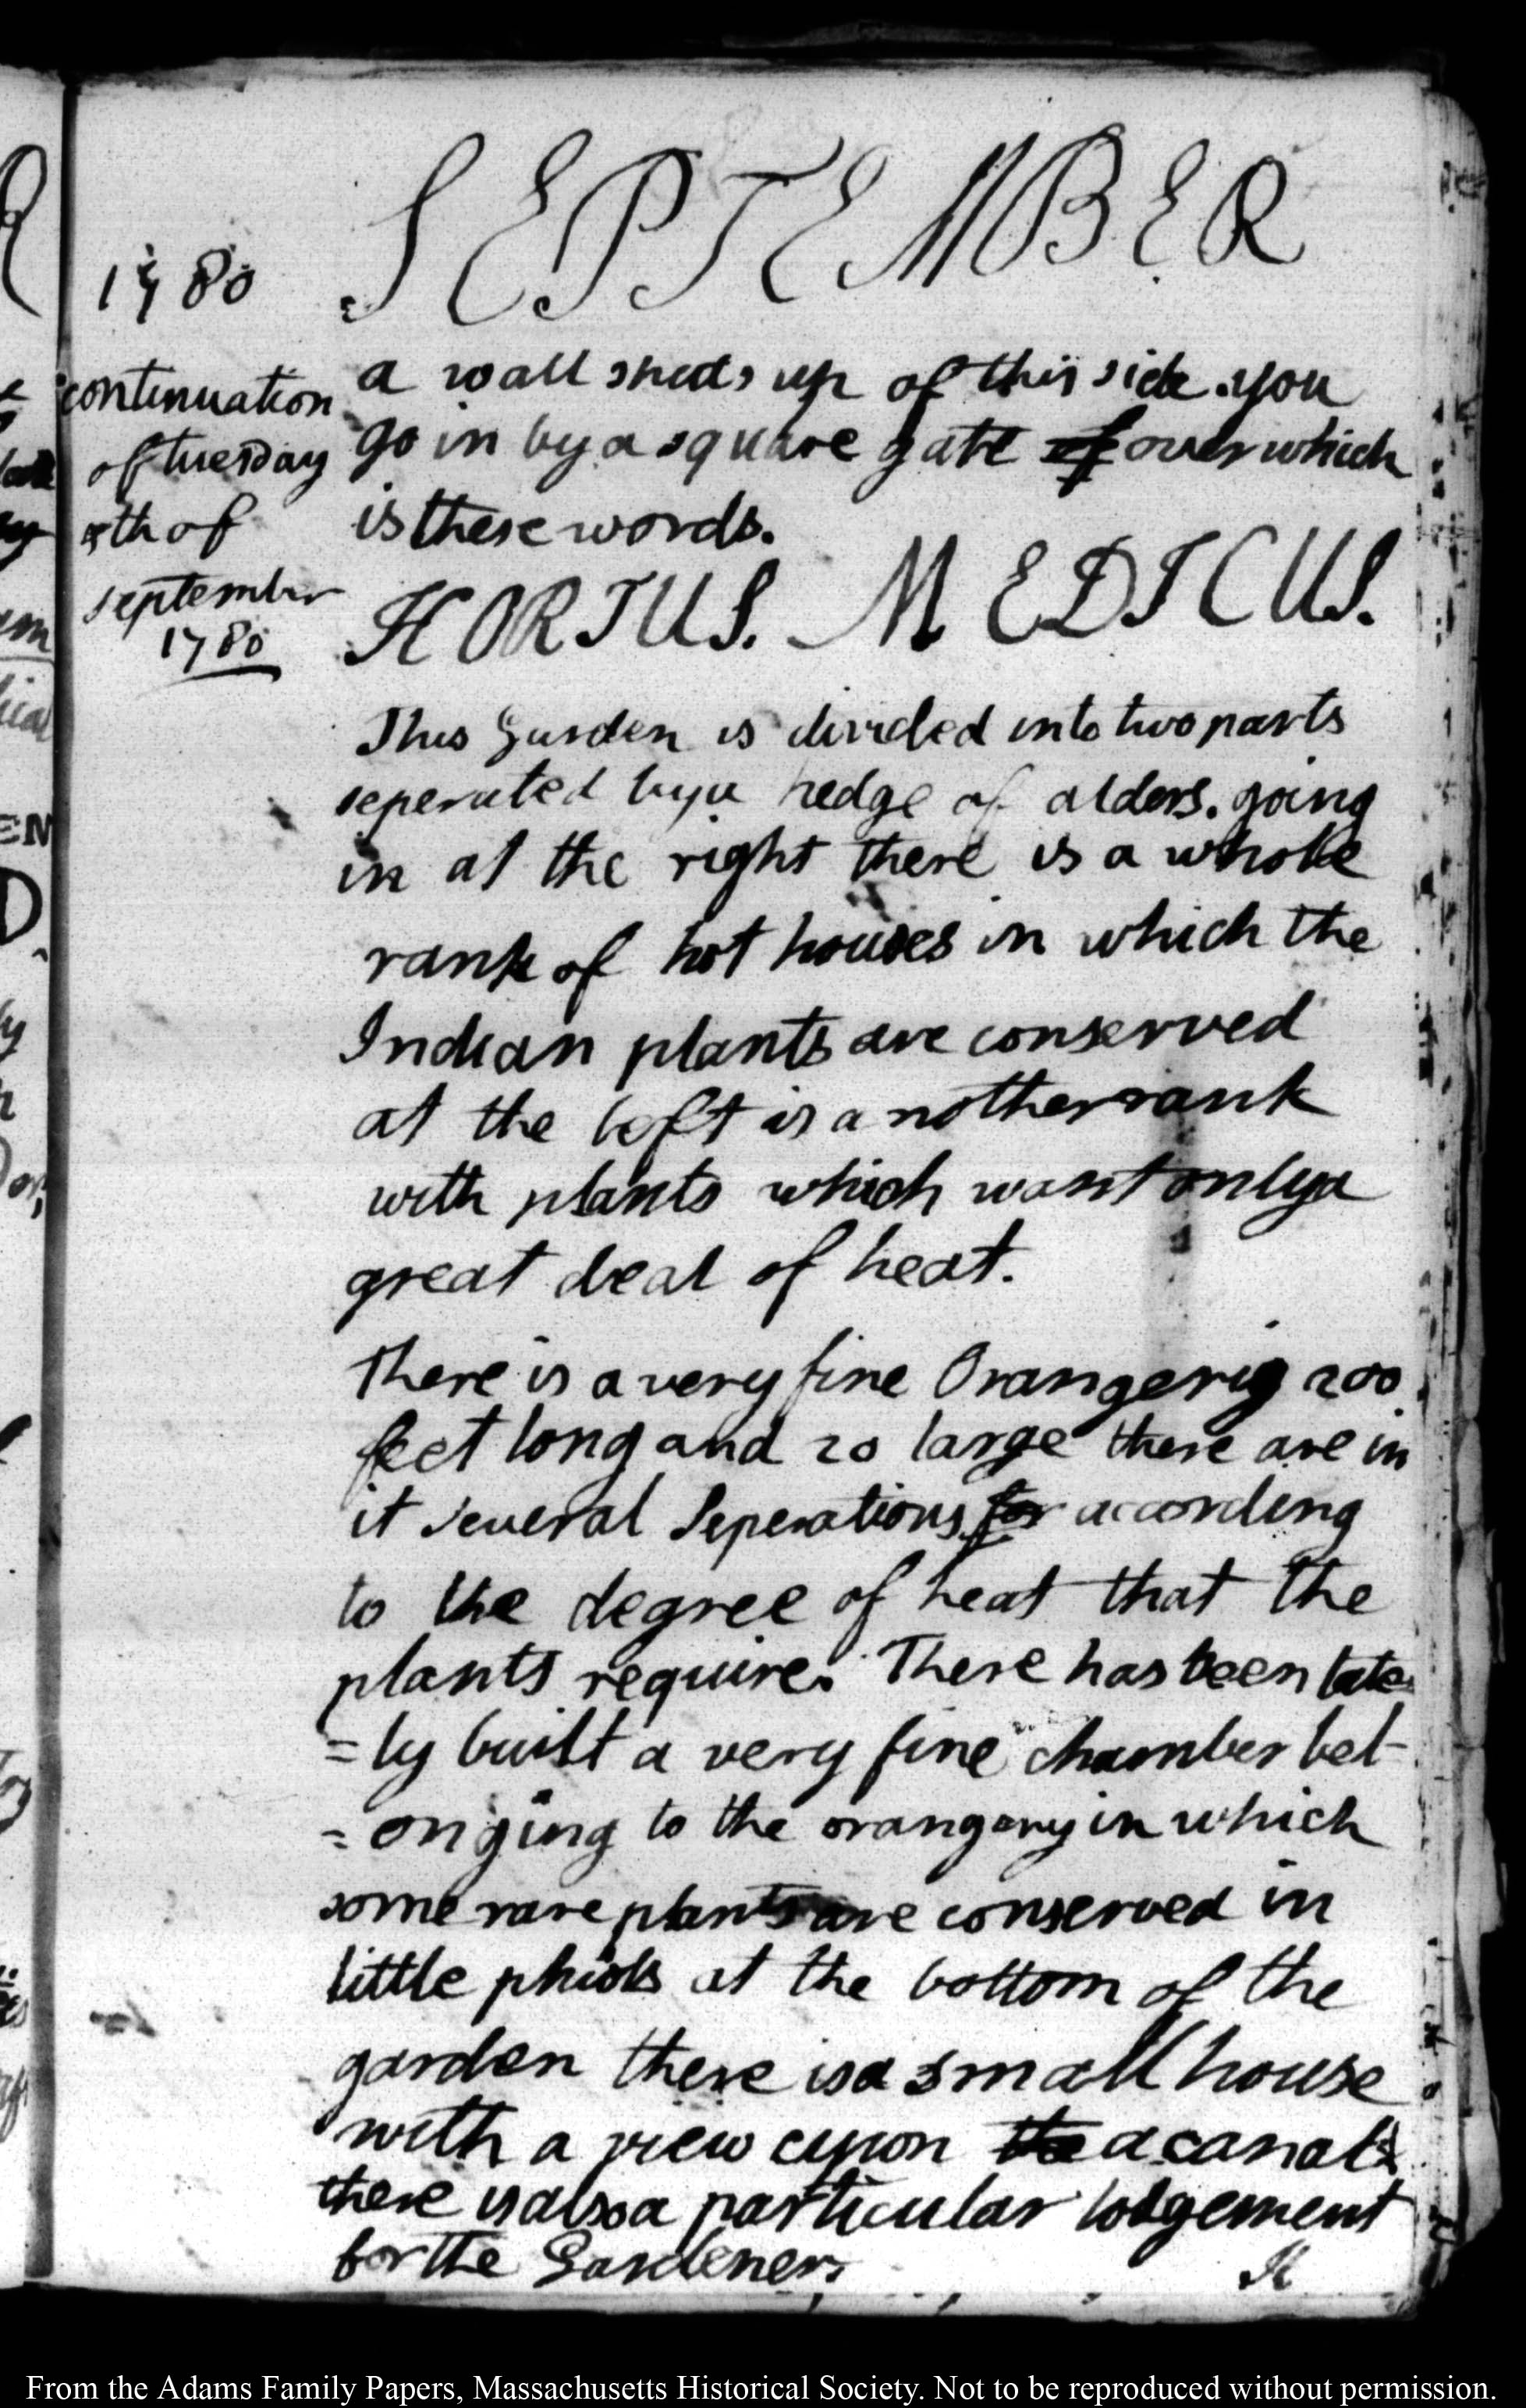 SEPTEMBER
1780
continuation
of tuesday
5th of
September
1780
a wall shuts up of this side. you
go in by a square gate of over which
is these words.
HORTUS. MEDICUS.
This Garden is divided into two parts
seperated by a hedge of alders. going
in at the right there is a whole
rank of hot houses in which the
Indian plants are conserved
at the left is a nother rank
with plants which want only a
great deal of heat.
There is a very fine Orangerig 200
feet long and 20 large there are in
it several Seperations for acording
to the degree of heat that the
plants require. There has been late
=ly built a very fine chamber bel-
=onging to the orangery in which
some rare plants are conserved in
little phiols at the bottom of the
garden there is a small house
with a view upon the a canal
there is also a particular lodgement
for the Gardener.
From the Adams Family Papers, Massachusetts Historical Society. Not to be reproduced without permission.